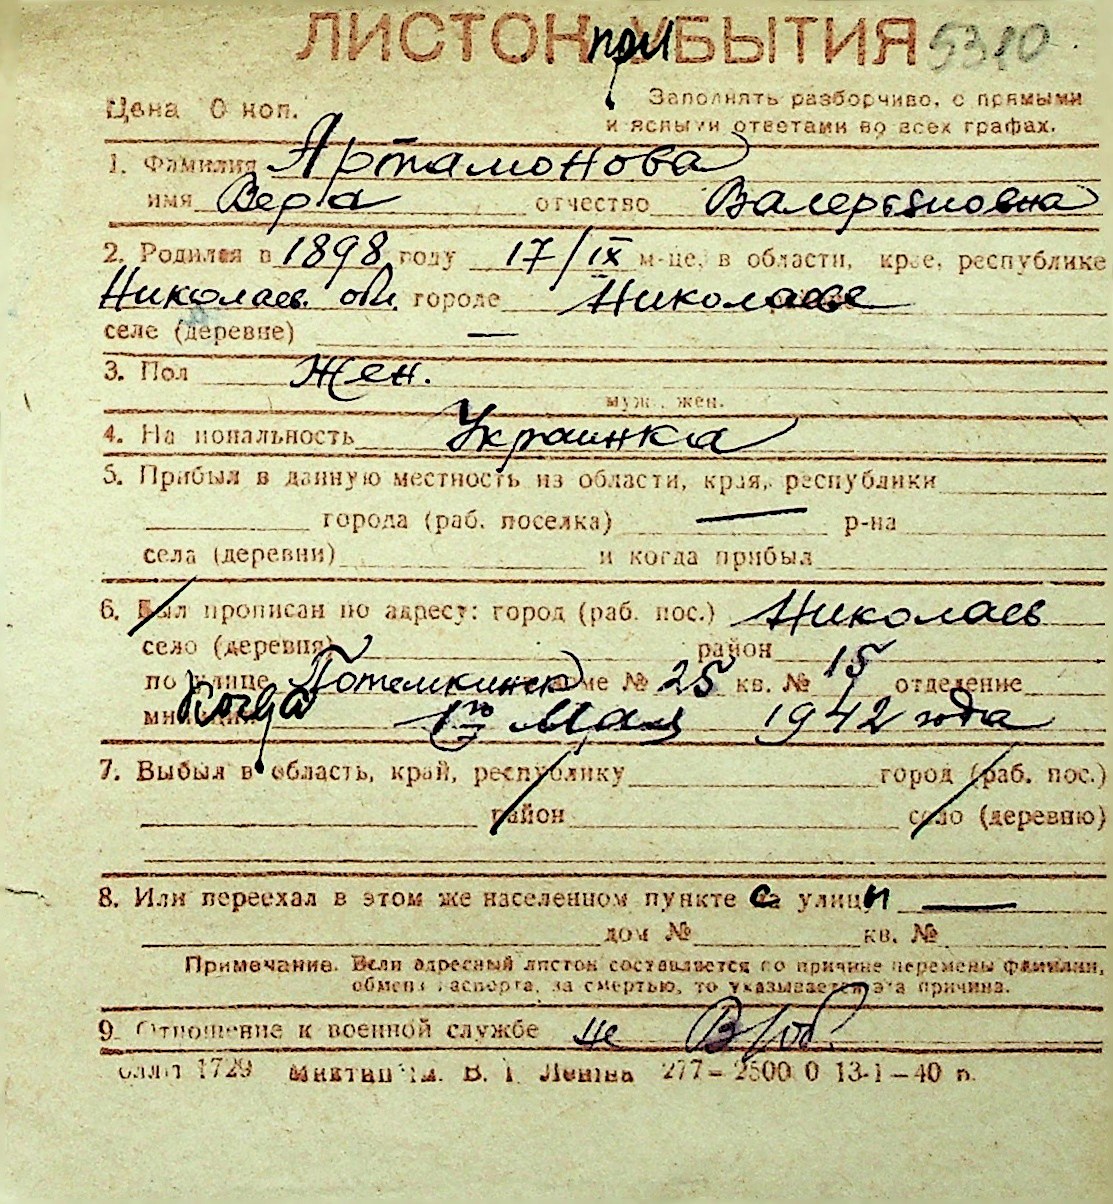 ЛИСТОК при УБЫТИЯ 5310
Цена 0 коп. Заполнять разборчиво, с прямыми
и ясными ответами во всех графах.
1. Фамилия Артамонова
имя Вера отчество Валерьяновна
2. Родился в 1898 году 17/IX м-це, в области, крае, республике
Николаев. обл. городе Николаеве
селе (деревне) —
3. Пол Жен.
муж., жен.
4. Национальность Украинка
5. Прибыл в данную местность из области, края, республики
города (раб. поселка) — р-на
села (деревни) и когда прибыл
6. Был прописан по адресу: город (раб. пос.) Николаев
село (деревня) район
по улице Потемкинск доме № 25 кв. № 15 отделение
милиции Когда 1го Мая 1942 года
7. Выбыл в область, край, республику город (раб. пос.)
район село (деревню)
8. Или переехал в этом же населенном пункте с улицы —
дом № кв. №
Примечание. Если адресный листок составляется по причине перемены фамилии,
обмена паспорта, за смертью, то указывается эта причина.
9. Отношение к военной службе не В/об.
1729 Миктип им. В. І. Леніна 277—2500 0 13-1—40 п.